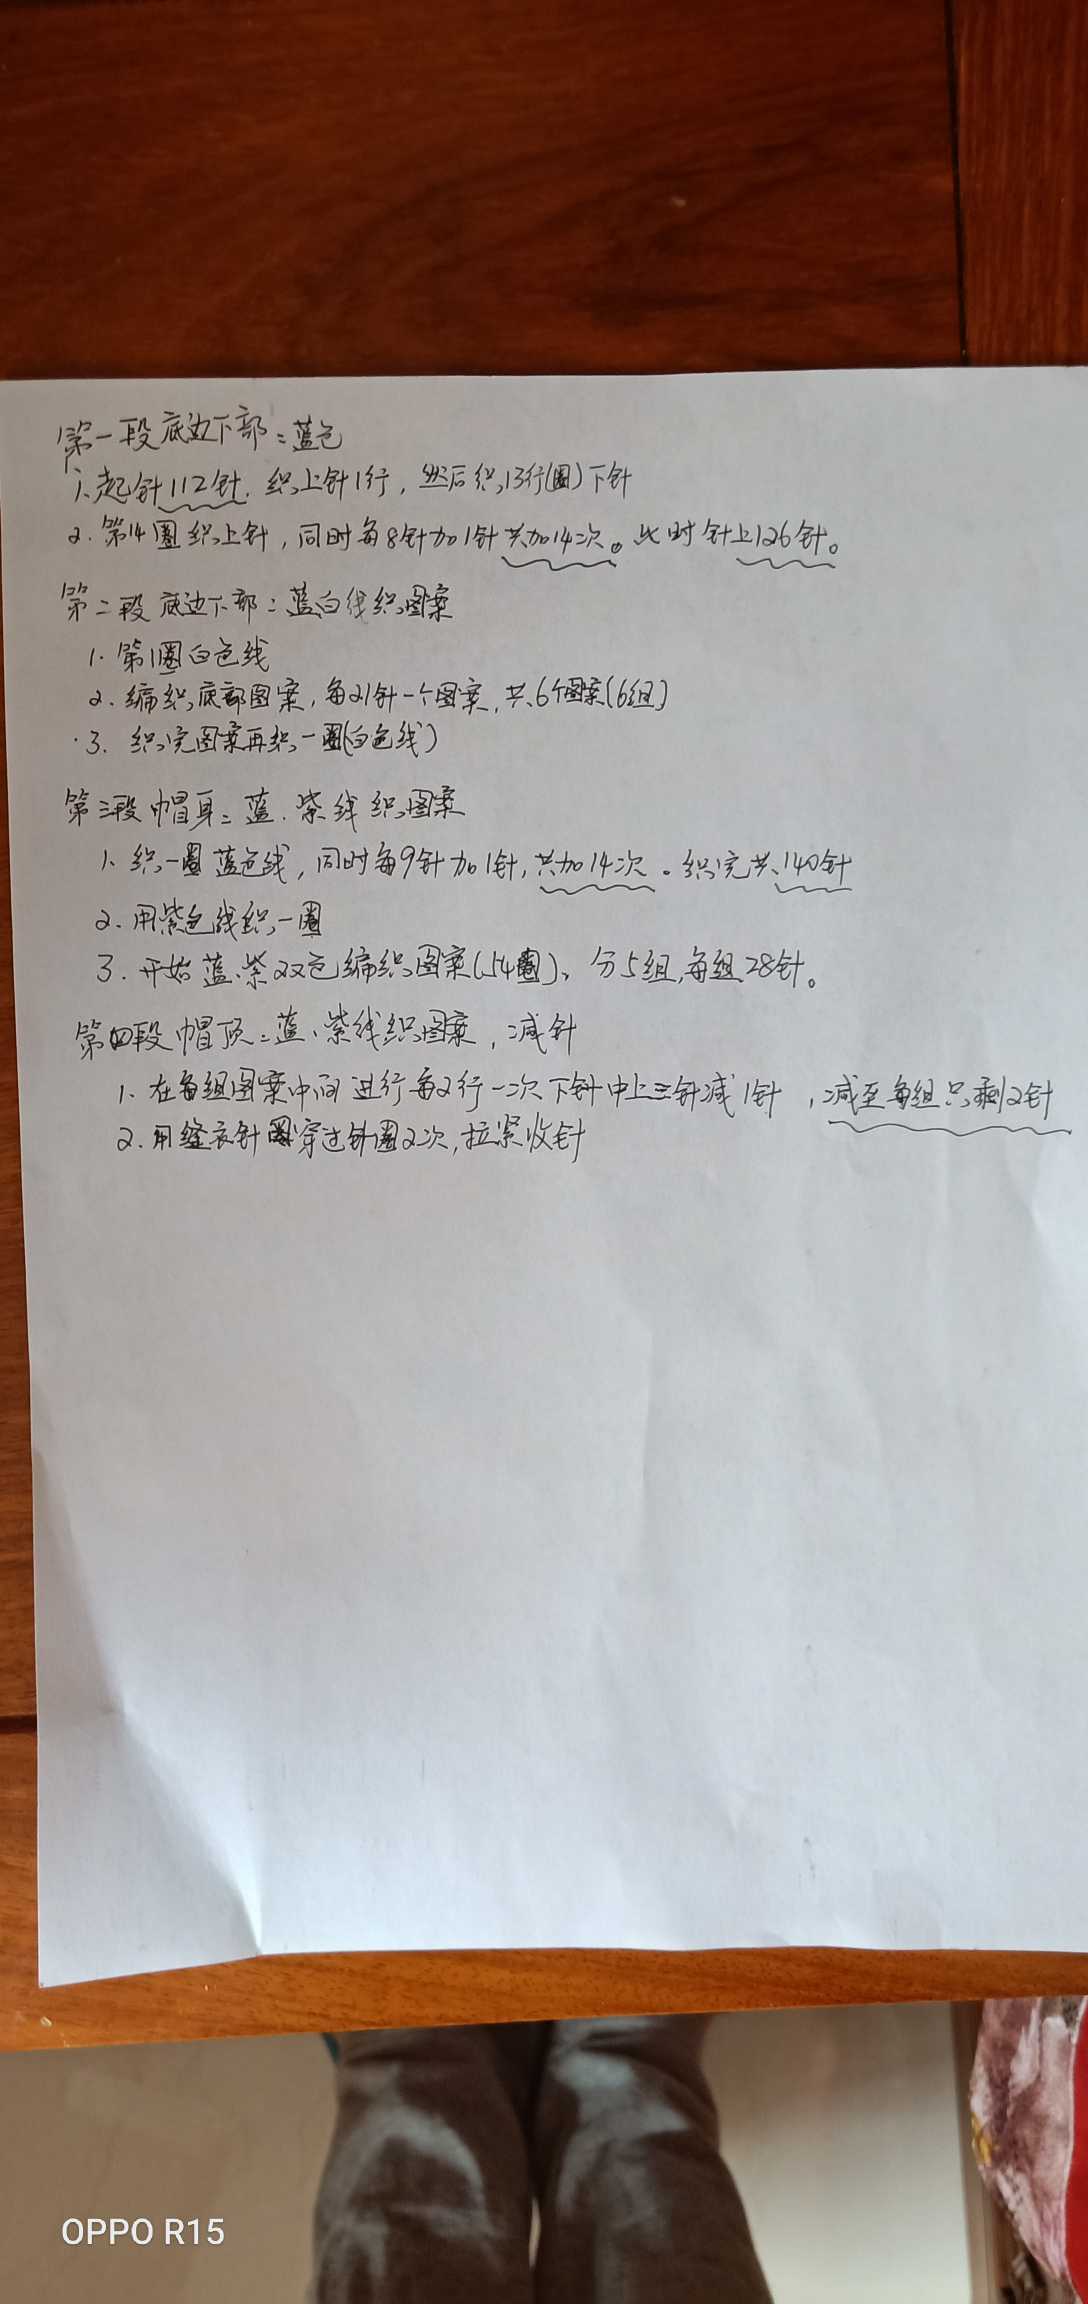 第一段底边下部：蓝色
1、起针112针，织上针1行，然后织13行(圈)下针
2.第14圈织上针，同时每8针加1针共加14次。此时针上126针。
第二段底边下部：蓝白线织图案
1.第1圈白色线
2.编织底部图案，每21针一个图案，共6个图案(6组)
3.织完图案再织一圈(白色线)
第三段帽身：蓝、紫线织图案
1、织一圈蓝色线，同时每9针加1针，共加14次。织完共140针
2.用紫色线织一圈
3.开始蓝、紫双色编织图案(54圈)、分5组，每组28针。
第四段帽顶：蓝、紫线织图案，减针
1.在每组图案中间进行每2行一次下针中上三针减1针，减至每组只剩2针
2.用缝衣针穿过针圈2次，拉紧收针
OPPO R15